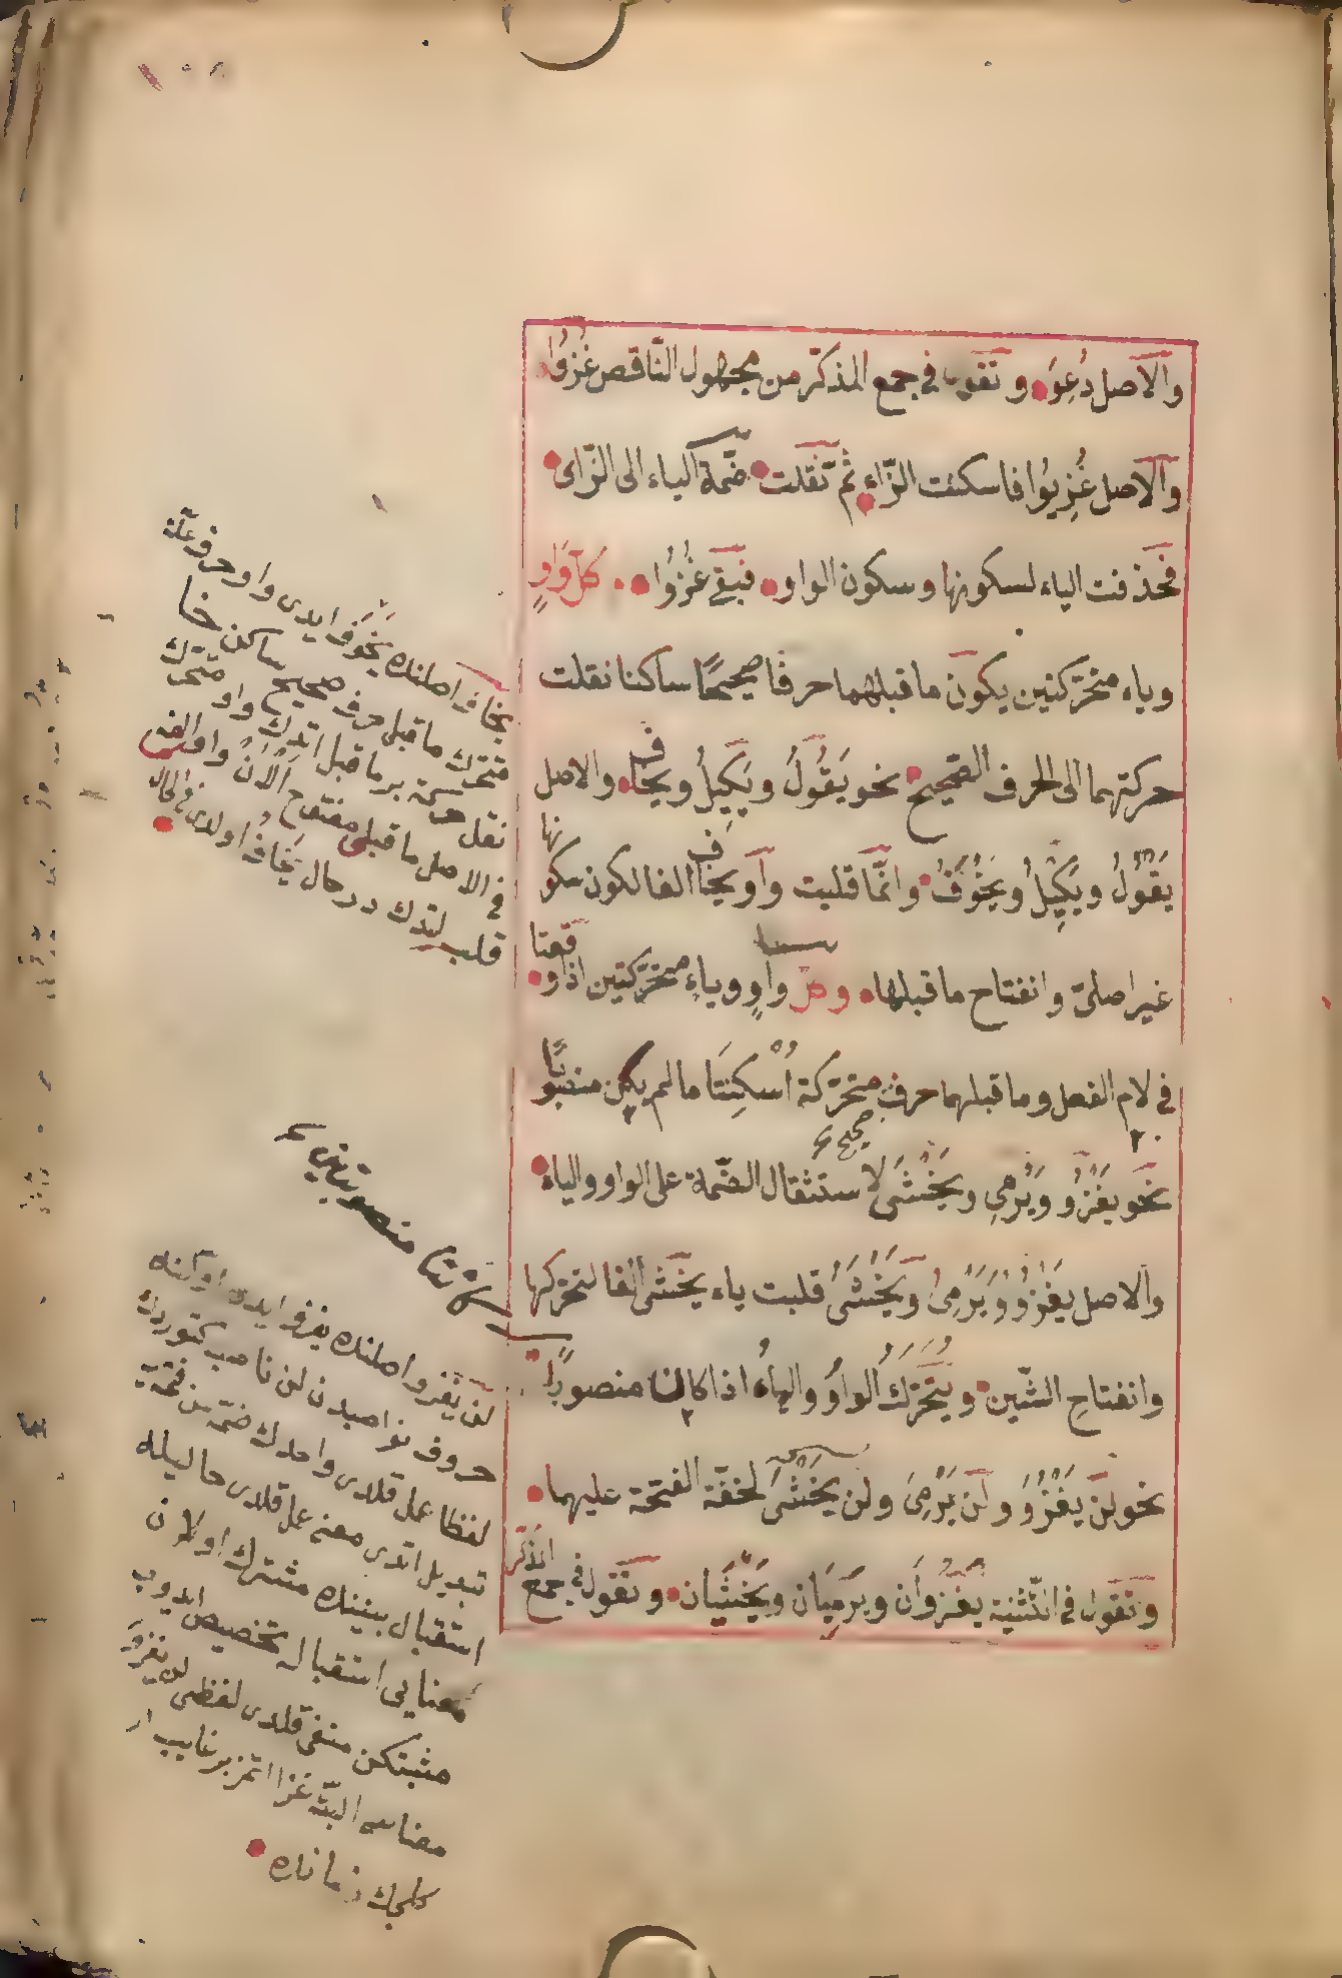 والاصل دُعِوَ وتقول في جمع المذكّر من مجهول النّاقص غُزُوا
والاصل غُزِيُوا فاسكنت الزّاء ثم نقلت ضمّة الياء الى الزّاى
فحذفت الياء لسكونها وسكون الواو فبقى غُزُوا كلّ واوٍ
وياء متحرّكتين يكون ما قبلهما حرفًا صحيحًا ساكنا نقلت
حركتهما الى الحرف الصّحيح نحو يَقُولُ ويَكِيلُ ويخاف والاصل
يَقْوُلُ ويَكْيِلُ ويَخْوَفُ وانّما قلبت واو يخاف الفا لكون سكونها
غير اصلىّ وانفتاح ما قبلها وكلّ واوٍ وياءٍ متحرّكتين اذا وقعتا
في لام الفعل وما قبلهما حرف متحرّكة اُسْكِنَتَا ما لم يكن منصوبًا
صحيح
نحو يَغْزُو ويَرْمِي ويَخْشَى لاستثقال الضّمة على الواو والياء
والاصل يَغْزُوُ ويَرْمِىُ ويَخْشَىُ قلبت ياء يخشى الفا لتحرّكها
وانفتاح الشّين ويتحرّك الواوُ والياءُ اذا كان منصوبًا
نحو لن يَغْزُوَ ولن يَرْمِىَ ولن يَخْشَى لخفّة الفتحة عليهما
وتقول في التّثنية يَغْزُوَان ويَرْمِيَان ويَخْشَيَان وتقول في جمع المذكّر
يخاف اصلنده يَخْوَفُ ايدى واو حرف علّة
متحرّك ما قبلى حرف صحيح ساكن
نقل حركة بر ما قبل اتدك واو متحرّك
في الاصل ما قبلى مفتوح الآن واو الفه
قلب اتدك در حال يَخَافُ اولدى
منصوبتين
لن يغزو اصلنده يغزو ايدى اولنه
حروف نواصبدن لن ناصب كتوردك
لفظا عمل قلدى واحدك ضمّه سن فتحه
تبديل اتدى معنى عمل قلدى حاليله
استقبال بيننده مشترك اولان
معنايى استقباله تخصيص ايدوب
مثبتكن منفى قلدى لفظى لن يغزو
معناسى البتّه غزا اتمز بر غايب ار
كلجك زمانده